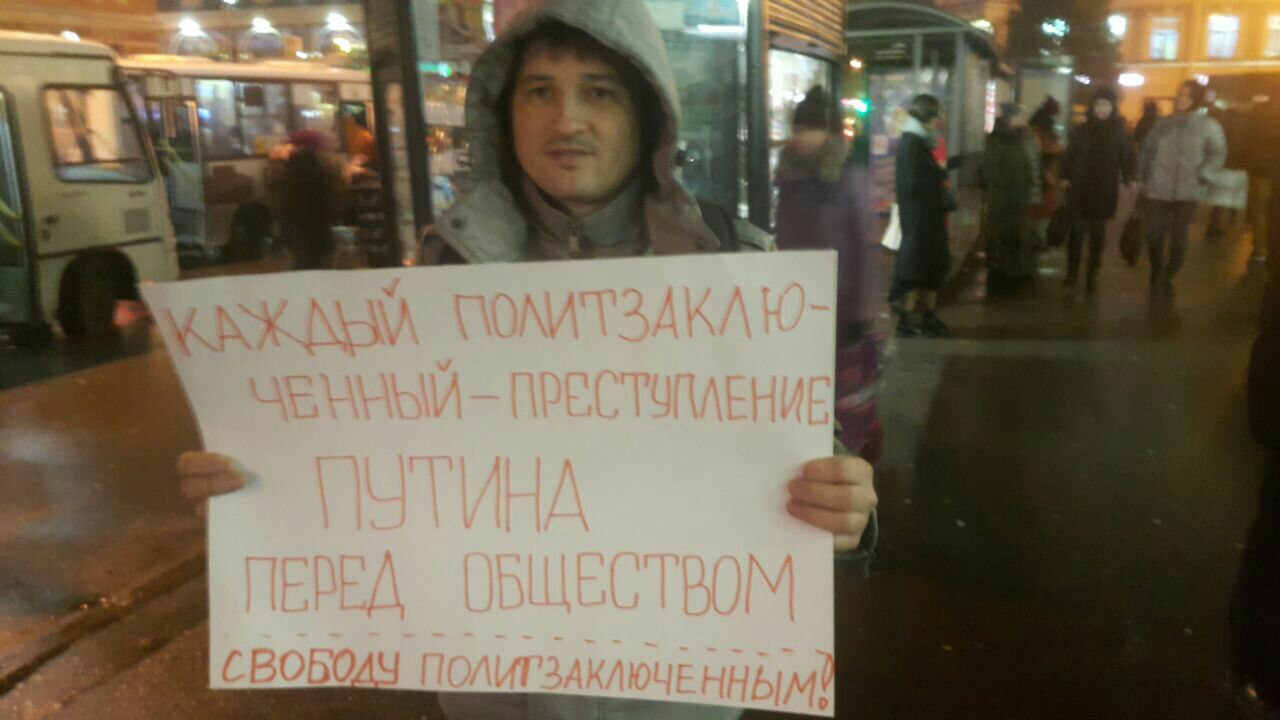 КАЖДЫЙ ПОЛИТЗАКЛЮ-
ЧЕННЫЙ-ПРЕСТУПЛЕНИЕ
ПУТИНА
ПЕРЕД ОБЩЕСТВОМ
СВОБОДУ ПОЛИТЗАКЛЮЧЕННЫМ!